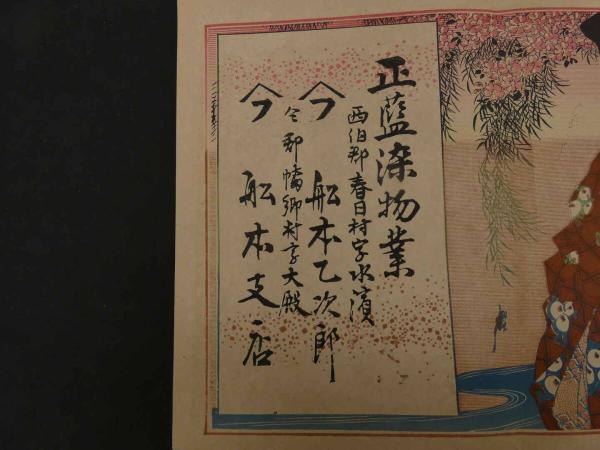 正藍染物業
西伯郡春日村字水濱
𠆢フ 船本乙次郎
仝郡幡郷村字大殿
𠆢フ 船本支店